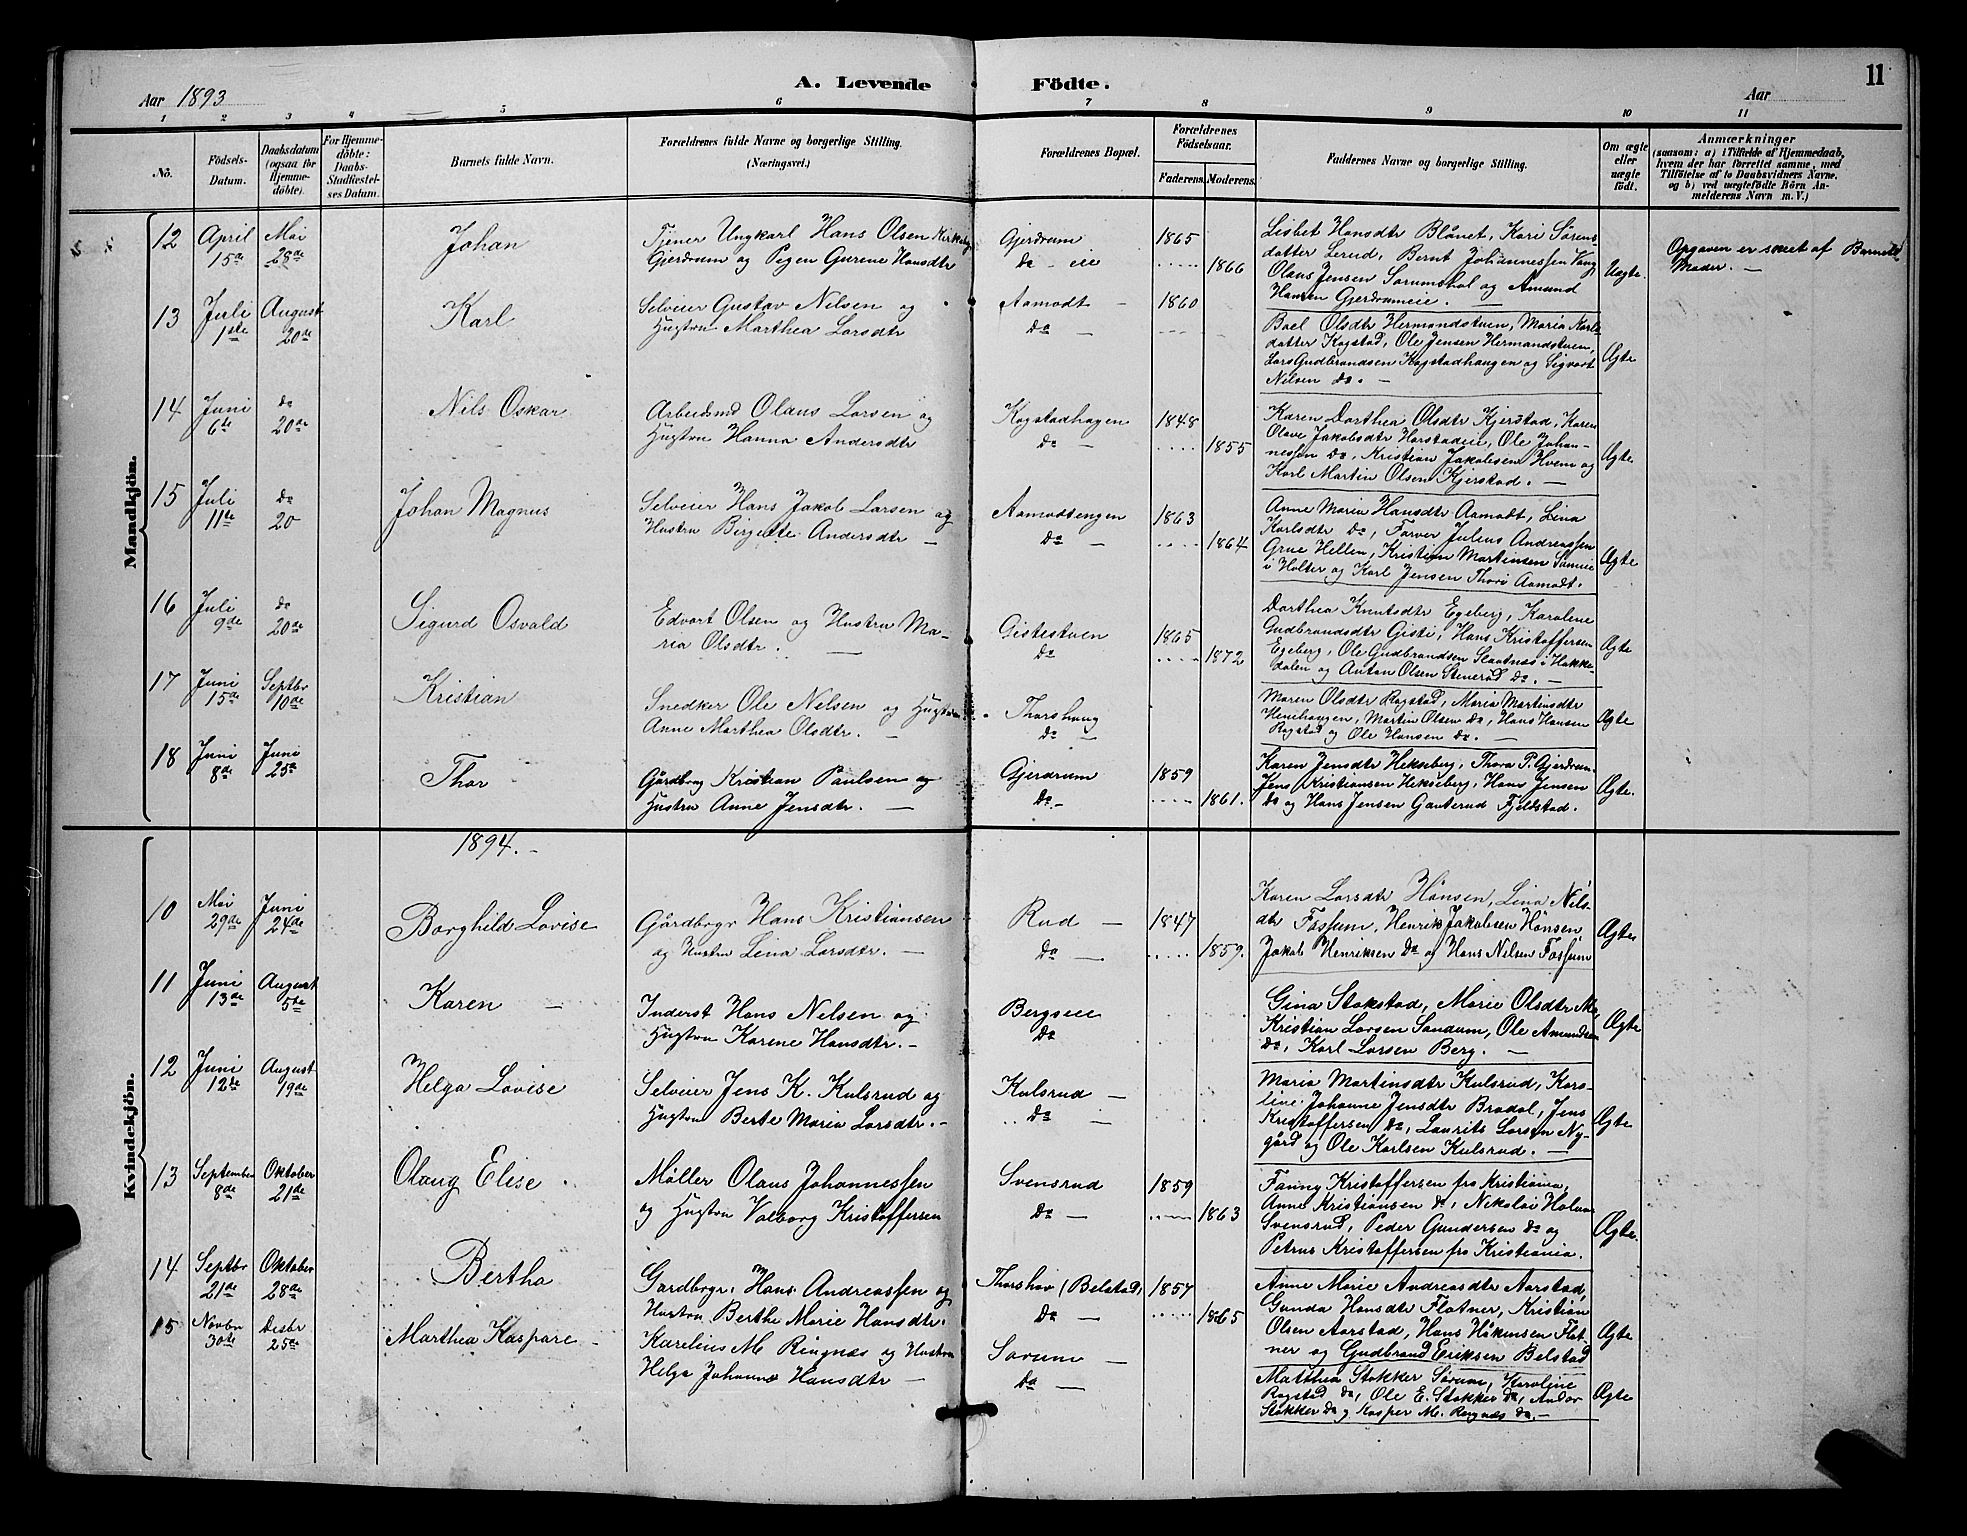 A. Levende Födte.
11
Aar 1893
Aar
1 2 3 4 5 6 7 8 9 10 11
No.
Födsels-Datum.
Daabsdatum (ogsaa for Hjemme-döbte).
For Hjemme-döbte: Daabs-Stadfæstel-ses Datum.
Barnets fulde Navn.
Forældrenes fulde Navne og borgerlige Stilling. (Næringsvei.)
Forældrenes Bopæl.
Forældrenes Födselsaar.
Faderens. Moderens.
Faddernes Navne og borgerlige Stilling.
Om ægte eller uægte födt.
Anmærkninger
(saasom: a) i Tilfælde af Hjemmedaab,
hvem der har forrettet samme, med
Tilföielse af to Daabsvidners Navne,
og b) ved uægtefödte Börn An-
melderens Navn m. V.)
Mandkjön.
12 April 15de Mai 28de Johan
Tjener Ungkarl Hans Olsen Kirkeby
Gjerdrum og Pigen Gurene Hansdtr
Gjerdrum
Do - eie
1865
1866
Lisbet Hansdtr Blånet, Kari Sörens-
datter Lerud, Bernt Johannessen Vang
Olaus Jensen Sörumskol og Amund
Hansen Gjerdrumeie. —
Uægte.
Opgaven er skeet af Barnets
Moder. —
13 Juli 1ste August 20de Karl
Selveier Gustav Nilsen og
Hustru Marthea Larsdtr
Aamodt -
Do -
1860
Boel Olsdtr Hermandstuen, Maria Karls-
datter Kogstad, Ole Jensen Hermandstuen,
Lars Gudbrandsen Kogstadhaugen og Sigvart
Nilsen Do. —
Ægte
14 Juni 6te Do 20de Nils Oskar
Arbeidsmd Olaus Larsen og
Hustru Hanna Andersdtr
Kogstadhagen
Do -
1848
1855
Karen Dorthea Olsdtr Kjerstad, Karen
Olave Jakobsdtr Harstadeie, Ole Johan-
nessen Do, Kristian Jakobsen Hvem og
Karl Martin Olsen Kjerstad. —
Ægte
15 Juli 11te Do 20 Johan Magnus
Selveier Hans Jakob Larsen og
Hustru Birgitte Andersdtr —
Aamodtengen
Do -
1863
1864
Anne Maria Hansdtr Aamodt, Lina
Karlsdtr Do, Farver Julius Andreassen
Grue Hellen, Kristian Martinsen
i Holter og Karl Jensen Thori Aamodt.
Ægte
16 Juli 9de Do 20de Sigurd Osvald
Edvart Olsen og Hustru Ma-
ria Olsdtr. —
Gistestuen
Do
1865
1872
Dorthea Knutsdtr Egeberg, Karoline
Gudbrandsdtr Gisti, Hans Kristoffersen
Egeberg, Ole Gudbrandsen Slaatnæs i Hakke-
dalen og Anton Olsen Stenerud Do. —
Ægte
17 Juni 15de Septbr 10de Kristian
Snedker Ole Nelsen og Hustru
Anne Marthea Olsdtr. —
Thorshaug
Do -
Maren Olsdtr Rogstad, Maria Martinsdtr
Henehaugen, Martin Olsen Do, Hans Hansen
Rogstad og Ole Hansen Do. —
Ægte
18 Juni 8de Juni 25de Thor
Gårdbrug Kristian Paulsen og
Hustru Anne Jensdtr. —
Gjerdrum
Do -
1859
1861.
Karen Jensdtr Hekseberg, Thora P. Gjerdrum
Jens Kristiansen Hekseberg, Hans Jensen
Do og Hans Jensen Ganterud Fjeldstad.
Ægte.
1894. -
Kvindekjön.
10 Mai 29de Juni 24de Borghild Lovise
Gårdbrgr Hans Kristiansen
og Hustru Lina Larsdtr. —
Rud —
Do —
1847
1859.
Karen Larsdtr Hönsen, Lina Nils-
dtr Fossum, Henrik Jakobsen Hönsen
Jakob Henriksen Do og Hans Nilsen Fossum
Ægte
11 Juni 13de August 5te Karen —
Inderst Hans Nelsen og
Hustru Karene Hansdtr. -
Bergseie
Do
Gina Stokstad, Marie Olsdtr
Kristian Larsen Sandum, Ole Amundsen
Do, Karl Larsen Berg. —
Ægte
12 Juni 12te August 19de Helga Lovise
Selveier Jens K. Kulsrud og
Hustru Berte Maria Larsdtr. -
Kulsrud —
Do —
Maria Martinsdtr Kulsrud, Karo-
line Johanne Jensdtr Bradal, Jens
Kristoffersen Do, Laurits Larsen Ny-
gård og Ole Karlsen Kulsrud. —
Ægte
13 September 8de Oktober 21de Olaug Elise.
Møller Olaus Johannessen
og Hustru Valborg Kristoffersen
Svensrud
Do —
1859
1863
Fanny Kristoffersen fra Kristiania,
Anne Kristiansen Do, Nikolai
Svensrud, Peder Gundersen Do og
Petrus Kristoffersen fra Kristiania.
Ægte.
14 Septbr 21de Oktober 28de Bertha
Gardbrgr. Hans Andreassen og
Hustru Berthe Marie Hansdtr.
Thorshov (Belstad)
Do —
1857
1865
Anne Marie Andreasdtr Aarstad,
Gunda Hansdtr Flatner, Kristian
Olsen Aarstad, Hans Håkensen Flat-
ner og Gudbrand Eriksen Belstad
Ægte
15 Novbr 30te Desbr 25de Marthea Kaspare —
Karelius M. Ringnæs og Hustru
Helga Johanne Hansdtr —
Sörum —
Do —
Matthea Stokker Sörum, Karoline
Rogstad Do, Ole E. Stokker Do, Andor
Stokker Do og Kasper M. Rognæs Do. —
Ægte